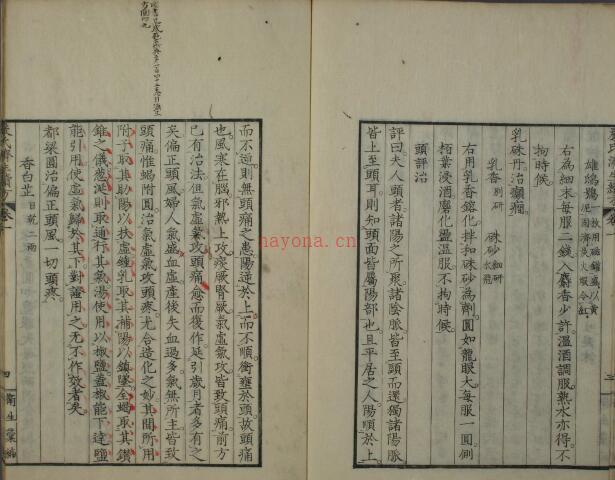 雄鴟鴞
右為細末每服二錢入麝香少許溫酒調服熟水亦得不
拘時候。
乳硃丹治癲癇
乳香 別研 硃砂 細研 水飛
右用乳香鎔化拌和硃砂為劑圓如龍眼大每服一圓側
柏葉浸酒磨化盌溫服不拘時候
頭評治
評曰夫人頭者諸陽之所聚諸陰脈皆至頸而還獨諸陽脈
皆上至頭耳則知頭面皆屬陽部也且平居之人陽順於上
而不逆則無頭痛之患陽逆於上而不順衝壅於頭故頭痛
也風寒在腦邪熱上攻痰厥腎厥氣虛氣攻皆致頭痛前方
已有治法但氣虛氣攻頭痛愈而復作延引歲月者多有之
矣偏正頭風婦人氣盛血虛產後失血過多氣無所主皆致
頭痛惟蝎附圓治氣虛氣攻頭疼尤合造化之妙其間所用
附子取其助陽以扶虛鍾乳取其補陽以鎮墜全蝎取其鑽
錐之儀蔥涎則取通行其氣湯使用以椒鹽蓋椒能下達鹽
能引用使虛氣歸於其下對證用之無不作效者矣
都梁圓治偏正頭風一切頭疼
香白芷 日乾二兩
四
衛生彙編
nayona.cn